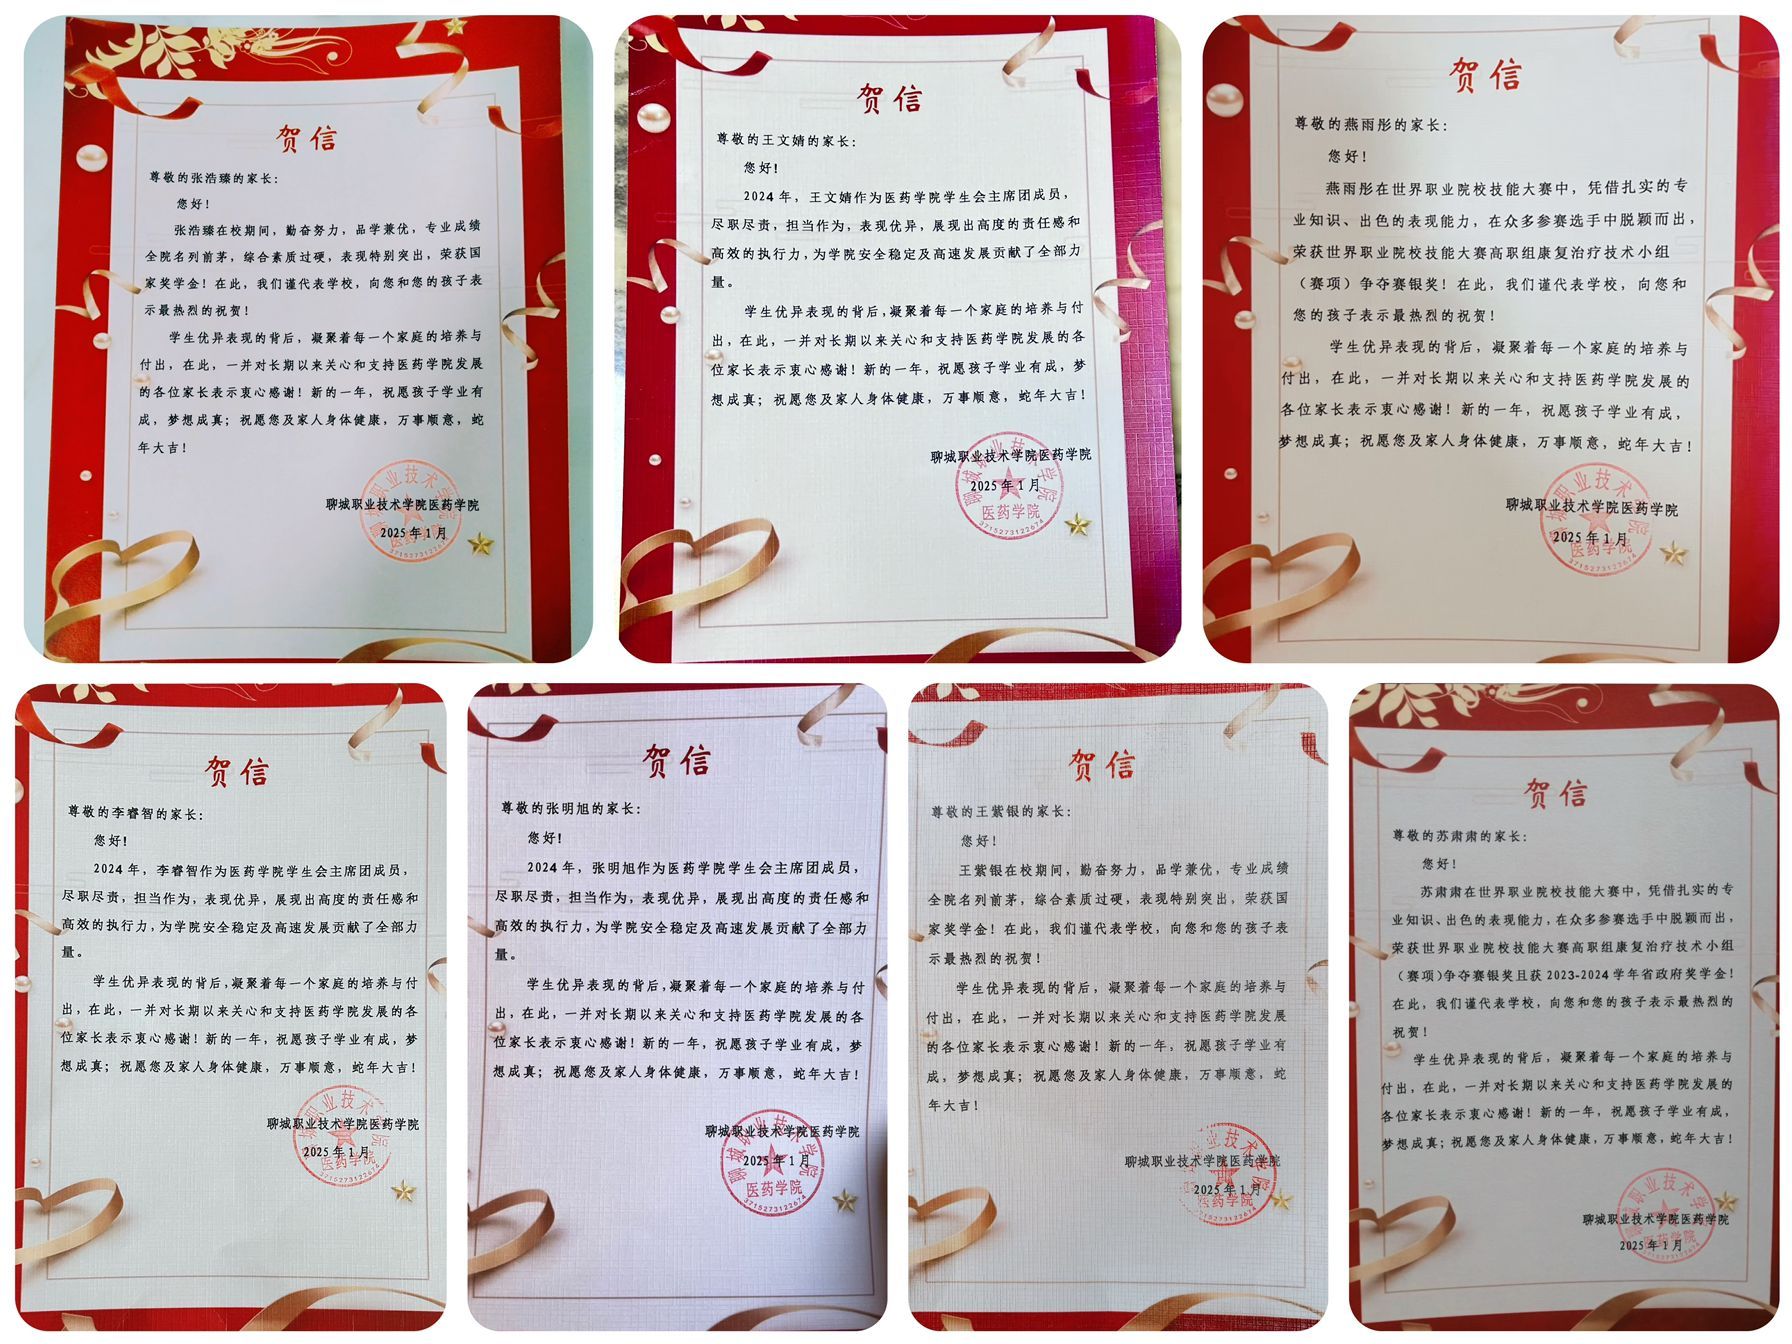 贺信
尊敬的张浩臻的家长：
您好！
张浩臻在校期间，勤奋努力，品学兼优，专业成绩
全院名列前茅，综合素质过硬，表现特别突出，荣获国
家奖学金！在此，我们谨代表学校，向您和您的孩子表
示最热烈的祝贺！
学生优异表现的背后，凝聚着每一个家庭的培养与
付出，在此，一并对长期以来关心和支持医药学院发展
的各位家长表示衷心感谢！新的一年，祝愿孩子学业有
成，梦想成真；祝愿您及家人身体健康，万事顺意，蛇
年大吉！
聊城职业技术学院医药学院
2025年1月
医药学院
3715273122674
贺信
尊敬的王文婧的家长：
您好！
2024年，王文婧作为医药学院学生会主席团成员，
尽职尽责，担当作为，表现优异，展现出高度的责任感和
高效的执行力，为学院安全稳定及高速发展贡献了全部力
量。
学生优异表现的背后，凝聚着每一个家庭的培养与付
出，在此，一并对长期以来关心和支持医药学院发展的各
位家长表示衷心感谢！新的一年，祝愿孩子学业有成，梦
想成真；祝愿您及家人身体健康，万事顺意，蛇年大吉！
聊城职业技术学院医药学院
2025年1月
聊城职业技术学院
医药学院
3715273122674
贺信
尊敬的燕雨彤的家长：
您好！
燕雨彤在世界职业院校技能大赛中，凭借扎实的专
业知识、出色的表现能力，在众多参赛选手中脱颖而出，
荣获世界职业院校技能大赛高职组康复治疗技术小组
（赛项）争夺赛银奖！在此，我们谨代表学校，向您和
您的孩子表示最热烈的祝贺！
学生优异表现的背后，凝聚着每一个家庭的培养与
付出，在此，一并对长期以来关心和支持医药学院发展的
各位家长表示衷心感谢！新的一年，祝愿孩子学业有成，
梦想成真；祝愿您及家人身体健康，万事顺意，蛇年大吉！
聊城职业技术学院医药学院
2025年1月
聊城职业技术学院
医药学院
3715273122674
贺信
尊敬的李睿智的家长：
您好！
2024年，李睿智作为医药学院学生会主席团成员，
尽职尽责，担当作为，表现优异，展现出高度的责任感和
高效的执行力，为学院安全稳定及高速发展贡献了全部力
量。
学生优异表现的背后，凝聚着每一个家庭的培养与付
出，在此，一并对长期以来关心和支持医药学院发展的各
位家长表示衷心感谢！新的一年，祝愿孩子学业有成，梦
想成真；祝愿您及家人身体健康，万事顺意，蛇年大吉！
聊城职业技术学院医药学院
2025年1月
医药学院
3715273122674
贺信
尊敬的张明旭的家长：
您好！
2024年，张明旭作为医药学院学生会主席团成员，
尽职尽责，担当作为，表现优异，展现出高度的责任感和
高效的执行力，为学院安全稳定及高速发展贡献了全部力
量。
学生优异表现的背后，凝聚着每一个家庭的培养与付
出，在此，一并对长期以来关心和支持医药学院发展的各
位家长表示衷心感谢！新的一年，祝愿孩子学业有成，梦
想成真；祝愿您及家人身体健康，万事顺意，蛇年大吉！
聊城职业技术学院医药学院
2025年1月
聊城职业技术学院
医药学院
3715273122674
贺信
尊敬的王紫银的家长：
您好！
王紫银在校期间，勤奋努力，品学兼优，专业成绩
全院名列前茅，综合素质过硬，表现特别突出，荣获国
家奖学金！在此，我们谨代表学校，向您和您的孩子表
示最热烈的祝贺！
学生优异表现的背后，凝聚着每一个家庭的培养与
付出，在此，一并对长期以来关心和支持医药学院发展
的各位家长表示衷心感谢！新的一年，祝愿孩子学业有
成，梦想成真；祝愿您及家人身体健康，万事顺意，蛇
年大吉！
聊城职业技术学院医药学院
2025年1月
医药学院
贺信
尊敬的苏肃肃的家长：
您好！
苏肃肃在世界职业院校技能大赛中，凭借扎实的专
业知识、出色的表现能力，在众多参赛选手中脱颖而出，
荣获世界职业院校技能大赛高职组康复治疗技术小组
（赛项）争夺赛银奖且获2023-2024学年省政府奖学金！
在此，我们谨代表学校，向您和您的孩子表示最热烈的
祝贺！
学生优异表现的背后，凝聚着每一个家庭的培养与
付出，在此，一并对长期以来关心和支持医药学院发展的
各位家长表示衷心感谢！新的一年，祝愿孩子学业有成，
梦想成真；祝愿您及家人身体健康，万事顺意，蛇年大吉！
聊城职业技术学院医药学院
2025年1月
医药学院
3715273122674